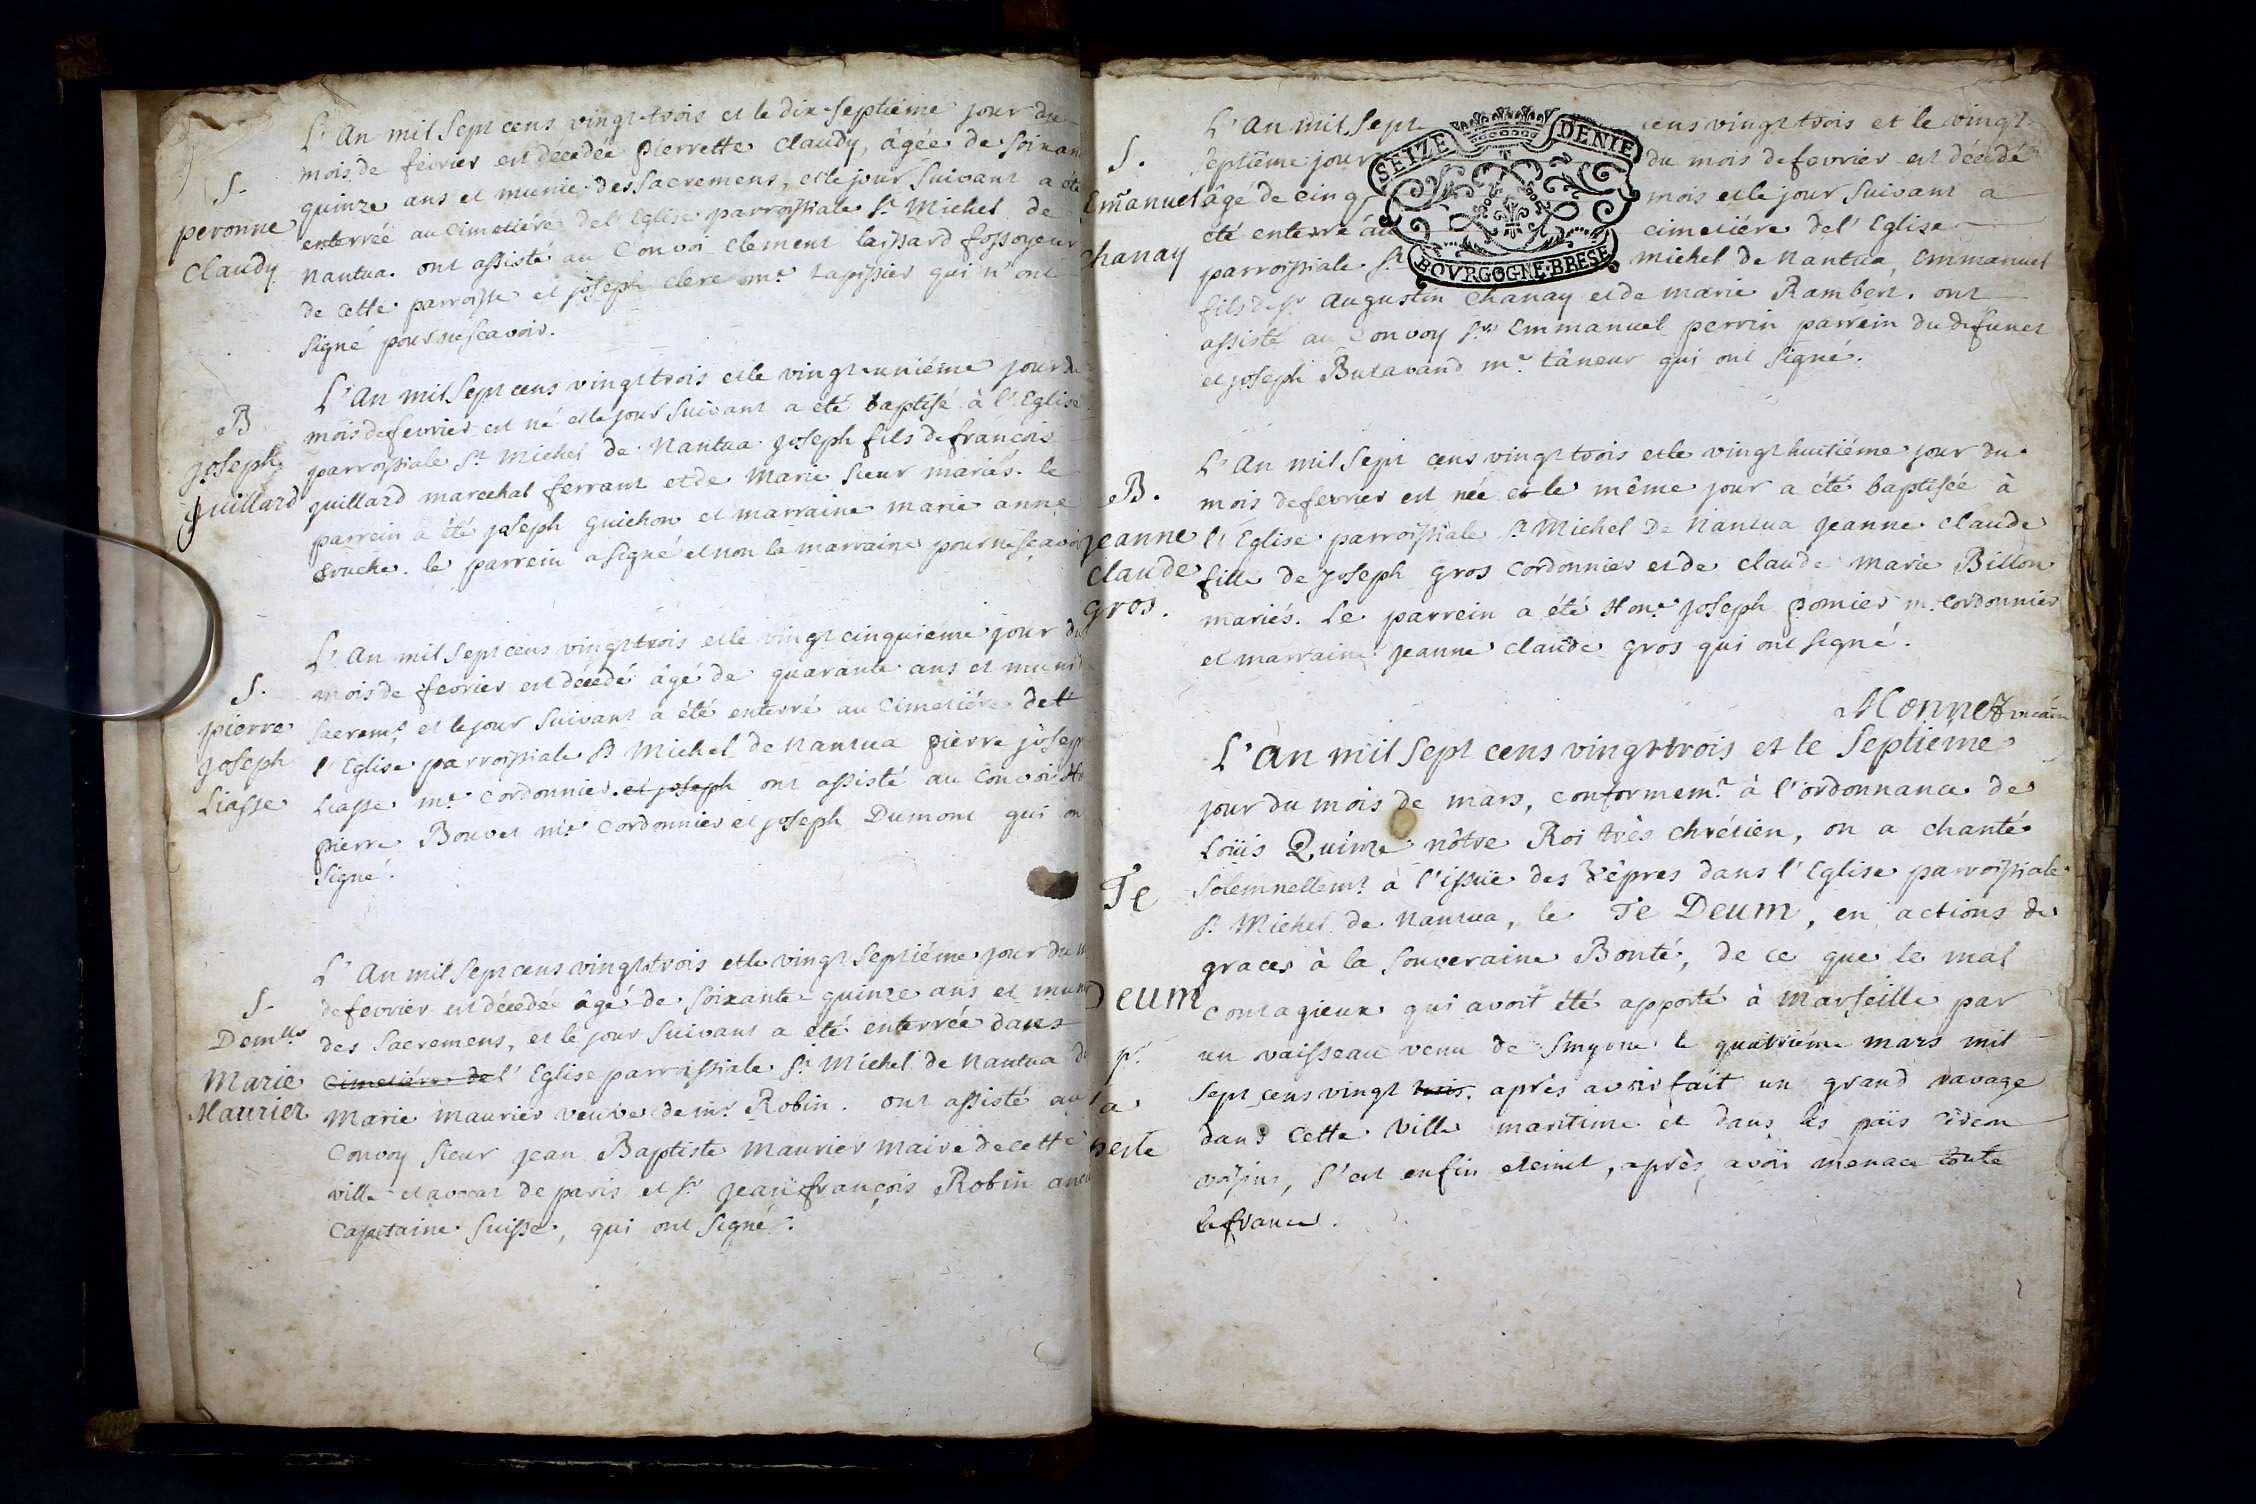 L'An mil Sept cens vingt-trois et le dix-Septiéme jour du
mois de fevrier est decedée pierrette claudy, âgée de Soixan
S.
quinze ans et munie des Sacremens, et le jour Suivant a été
peronne
enterrée au Cimetiére de l'Eglise parroissiale St Michel de
Claudy
Nantua. ont assisté au Convoi clement laissard fossoyeur
de cette parroisse et joseph clerc me tapissier qui n'ont
Signé pour ne sçavoir.
L'An mil Sept cens vingt trois et le vingt-uniéme jour du
B
mois de fevrier est né et le jour Suivant a été baptisé à l'Eglise
joseph
parroissiale St Michel de Nantua joseph fils de françois
guillard
guillard marechal ferrant et de Marie Sieur mariés. le
parrein a été joseph guichon et marraine marie anne
le parrein a signé et non la marraine pour ne sçavoir
L'An mil Sept cens vingt trois et le vingt cinquiéme jour du
S.
mois de fevrier est décedé âgé de quarante ans et muni
pierre
Sacremts et le jour Suivant a été enterré au Cimetiére de l'
joseph
l'Eglise parroissiale St Michel de Nantua pierre joseph
Liasse
Liasse me Cordonnier. et joseph ont assisté au Convoi
pierre Bouvet me Cordonnier et joseph Dumont qui on
Signé.
L'An mil Sept cens vingt-trois et le vingt Septiéme jour du m
S.
de fevrier est décedée âgé de Soixante quinze ans et muni
Demlle
des Sacremens, et le jour Suivant a été enterrée dans
Marie
Cimetiére de l'Eglise parroissiale St Michel de Nantua
Maurier
Marie Maurier veuve de mr Robin. ont assisté au
Convoy Sieur jean Baptiste Maurier Maire de cette
ville et avocat de paris et Sr jean françois Robin anci
Capitaine Suisse, qui ont Signé.
L'An mil Sept cens vingt trois et le vingt-
SEIZE DENIE
BOVRGOGNE·BRESE
S.
Septiéme jour du mois de fevrier est décédé
Emanuel
âgé de cinq mois et le jour Suivant a
été enterré au cimetiére de l'Eglise
Chanay
parroissiale St michel de Nantua, Emmanuel
fils de Sr Augustin Chanay et de marie Rambert. ont
assisté au Convoy Sr Emmanuel perrin parrein du defunct
et joseph Butavand me tâneur qui ont Signé.
L'An mil Sept cens vingt trois et le vingt huitiéme jour du
B.
mois de fevrier est née et le même jour a été baptisée à
jeanne
l'Eglise parroissiale St Michel De Nantua jeanne claude
Claude
fille de joseph gros Cordonnier et de claude Marie Billon
gros.
mariés. Le parrein a été Hone joseph pomier me Cordonnier
et marraine jeanne claude gros qui ont signé.
Monnet vicaire
L'An mil Sept cens vingt-trois et le Septieme
jour du mois de mars, conformemt à l'ordonnance de
Loüis Quinze nôtre Roi très chrétien, on a chanté
Te
Solemnellemt à l'issüe des Vêpres dans l'Eglise parroissiale
St Michel de Nantua, le Te Deum, en actions de
graces à la Souveraine Bonté, de ce que le mal
Deum
Contagieux qui avoit été apporté à Marseille par
pr
un vaisseau venu de Smyrne le quatriéme mars mil
la
Sept cens vingt trois. après avoir fait un grand ravage
peste
dans cette Ville maritime et dans les païs
voisins, s'est enfin eteint, après avoir menacé toute
la france.